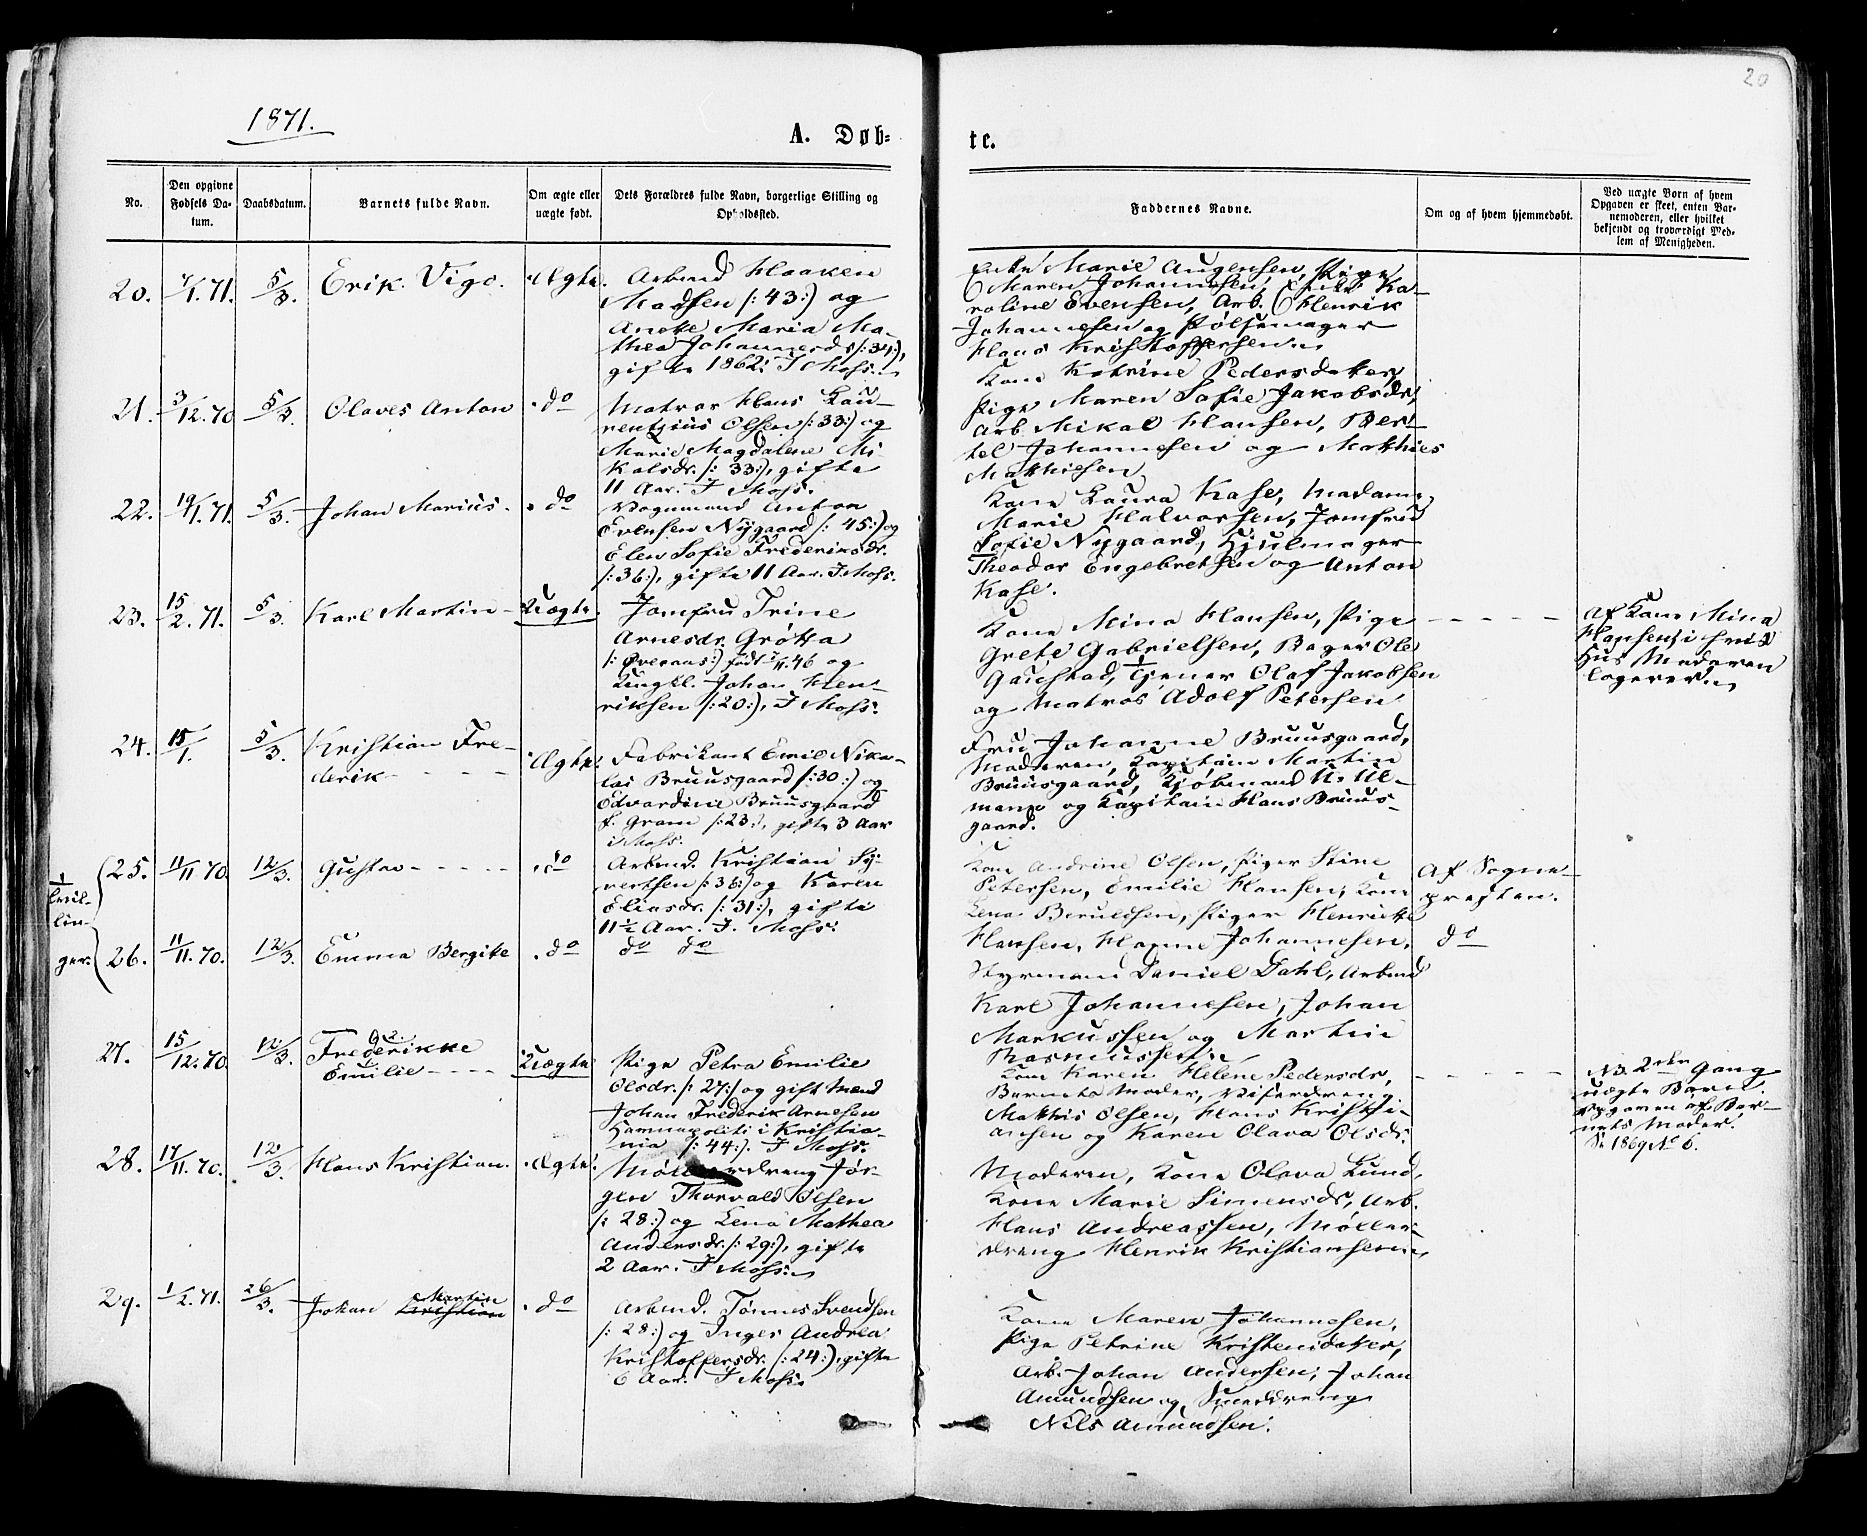 20
1871.
A. Døb=
te.
No.
Den opgivne
Fødsels Da=
tum.
Daabsdatum.
Barnets fulde Navn.
Om ægte eller
uægte født.
Dets Forældres fulde Navn, borgerlige Stilling og
Opholdssted.
Faddernes Navne.
Om og af hvem hjemmedøbt.
Ved uægte Børn af hvem
Opgaven er skeet, enten Bar-
nemoderen, eller hvilket
bekjendt og troværdigt Med-
lem af Menigheden.
20. 7/1.71. 5/3. Erik Vigo. Ægte.
Arbmd Haaken
Madsen /:43:/ og
Anette Maria Ma-
thea Johannesd. /:34:/,
gifte 1862. I Moss.
Enke Marie Augensen, Pige
Maren Johannesen, Enke Ka-
roline Evensen, Arb. Henrik
Johannesen og Pølsemager
Hans Kristoffersen.
21. 3/12.70 5/3. Olaves Anton do
Matros Hans Lau-
rentzius Olsen /:33:/ og
Marie Magdalene Mi-
kalsdr. /:33:/, gifte
11 Aar. I Moss.
Kone Katrine Pedersdater,
Pige Maren Sofie Jakobsdr,
Arb. Mikal Hansen, Ber-
tel Johannesen og Mathies
Mathiesen
22. 19/1.71. 5/3. Johan Marius. do
Vognmand Anton
Evensen Nygaard /:45:/ og
Elen Sofie Frederiksdr.
/:36:/, gifte 11 Aar. I Moss.
Kone Laura Kase, Madam
Marie Halvorsen, Jomfru
Sofie Nygaard, Hjulmager
Theodor Engebretsen og Anton
Kase.
23. 15/2.71. 5/3. Karl Martin - Uægte.
Jomfru Trine
Arnesdr. Grøtta
/:Øveraas:/ født 7/11.46 og
Ungkl. Johan Hen-
riksen /:20:/, I Moss.
Kone Mina Hansen, Pige
Grete Gabrielsen, Bager Ole
Gaustad, Tjener Olaf Jakobsen
og Matros Adolf Petersen
- - - - -
Af Kone Mina
Hansen, i hvis
Hus Moderen
logerer
24. 15/1. 5/3. Kristian Fre-
derik - - - - Ægte.
Fabrikant Emil Niko-
lai Bruusgaard /:30:/ og
Edvardine Bruusgaard
f. Gram /:23:/, gifte 3 Aar
i Moss.
Fru Johanne Bruusgaard,
Moderen, Kapitain Martin
Bruusgaard, Kjøbmand
mann og Kapitain Hans Bruus-
gaard.
Tvil-
lin-
ger.
25. 11/11 70 12/3. Gustav - - - - - do
Arbmd. Kristian Sy-
vertsen /:36:/ og Karen
Eliasdr. /:31:/, gifte
11½ Aar. I Moss.
Kone Andrine Olsen, Piger Stine
Petersen, Emilie Hansen, Kone
Lena Beruldsen, Piger Henrikke
Af Sogne-
presten.
26. 11/11.70. 12/3. Emma Bergite do do do
Hansen, Hanne Johannesen,
Styrmand Daniel Dahl, Arbmd
Karl Johannesen, Johan
Markussen og Martin
Rasmussen.
do
27. 15/12.70. 12/3. Frederikke
Emilie - - - - Uægte
Pige Petra Emilie
Olsdr. /:27:/ og gift Mand
Johan Frederik Arnesen
Havnepoliti i Kristia-
nia /:44:/. I Moss.
Kone Karen Helene Pedersdr,
Barnets Moder, Viserdreng
Mathis Olsen, Hans Kristi-
ansen og Karen Olava Olsdr.
- - - - -
NB. 2den Gang
uægte Barn
Opgaven af Bar-
nets Moder.
Se 1869 No 6.
28. 17/11.70. 12/3. Hans Kristian. Ægte.
Møllerdreng Jør-
gen Thorvald Olsen
/:28:/ og Lena Mathea
Andersdr. /:29:/, gifte
2 Aar. I Moss.
Moderen, Kone Olava Lund,
Kone Marie Simensdr, Arb.
Hans Andreassen, Møller-
dreng Henrik Kristiansen
29. 1/2.71. 26/3. Johan Kristian Martin do
Arbmd. Tønnes Svendsen
/:28:/ og Inger Andrea
Kristoffersdr. /:24:/, gifte
6 Aar. I Moss.
Kone Maren Johannesen,
Pige Petrine Kristensdater,
Arb. Johan Andersen, Johan
Amundsen og Smeddreng
Nils Amundsen.